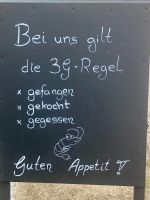 Bei uns gilt
die 3G-Regel
x gefangen
x gekocht
x gegessen
Guten Appetit!